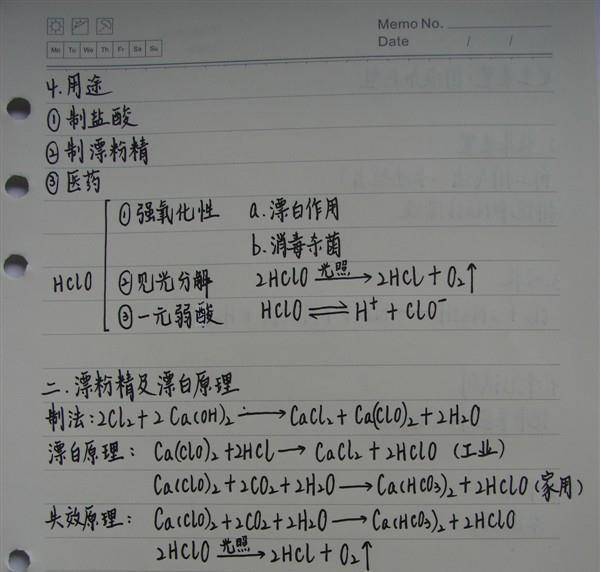 Memo No.
Date / /
Mo Tu We Th Fr Sa Su
4.用途
①制盐酸
②制漂粉精
③医药
HClO
①强氧化性 a.漂白作用
b.消毒杀菌
②见光分解 2HClO 光照→ 2HCl + O₂↑
③一元弱酸 HClO ⇌ H⁺ + ClO⁻
二.漂粉精及漂白原理
制法:2Cl₂+2Ca(OH)₂ → CaCl₂+Ca(ClO)₂+2H₂O
漂白原理: Ca(ClO)₂+2HCl → CaCl₂+2HClO (工业)
Ca(ClO)₂+2CO₂+2H₂O → Ca(HCO₃)₂+2HClO(家用)
失效原理: Ca(ClO)₂+2CO₂+2H₂O → Ca(HCO₃)₂+2HClO
2HClO 光照→ 2HCl + O₂↑